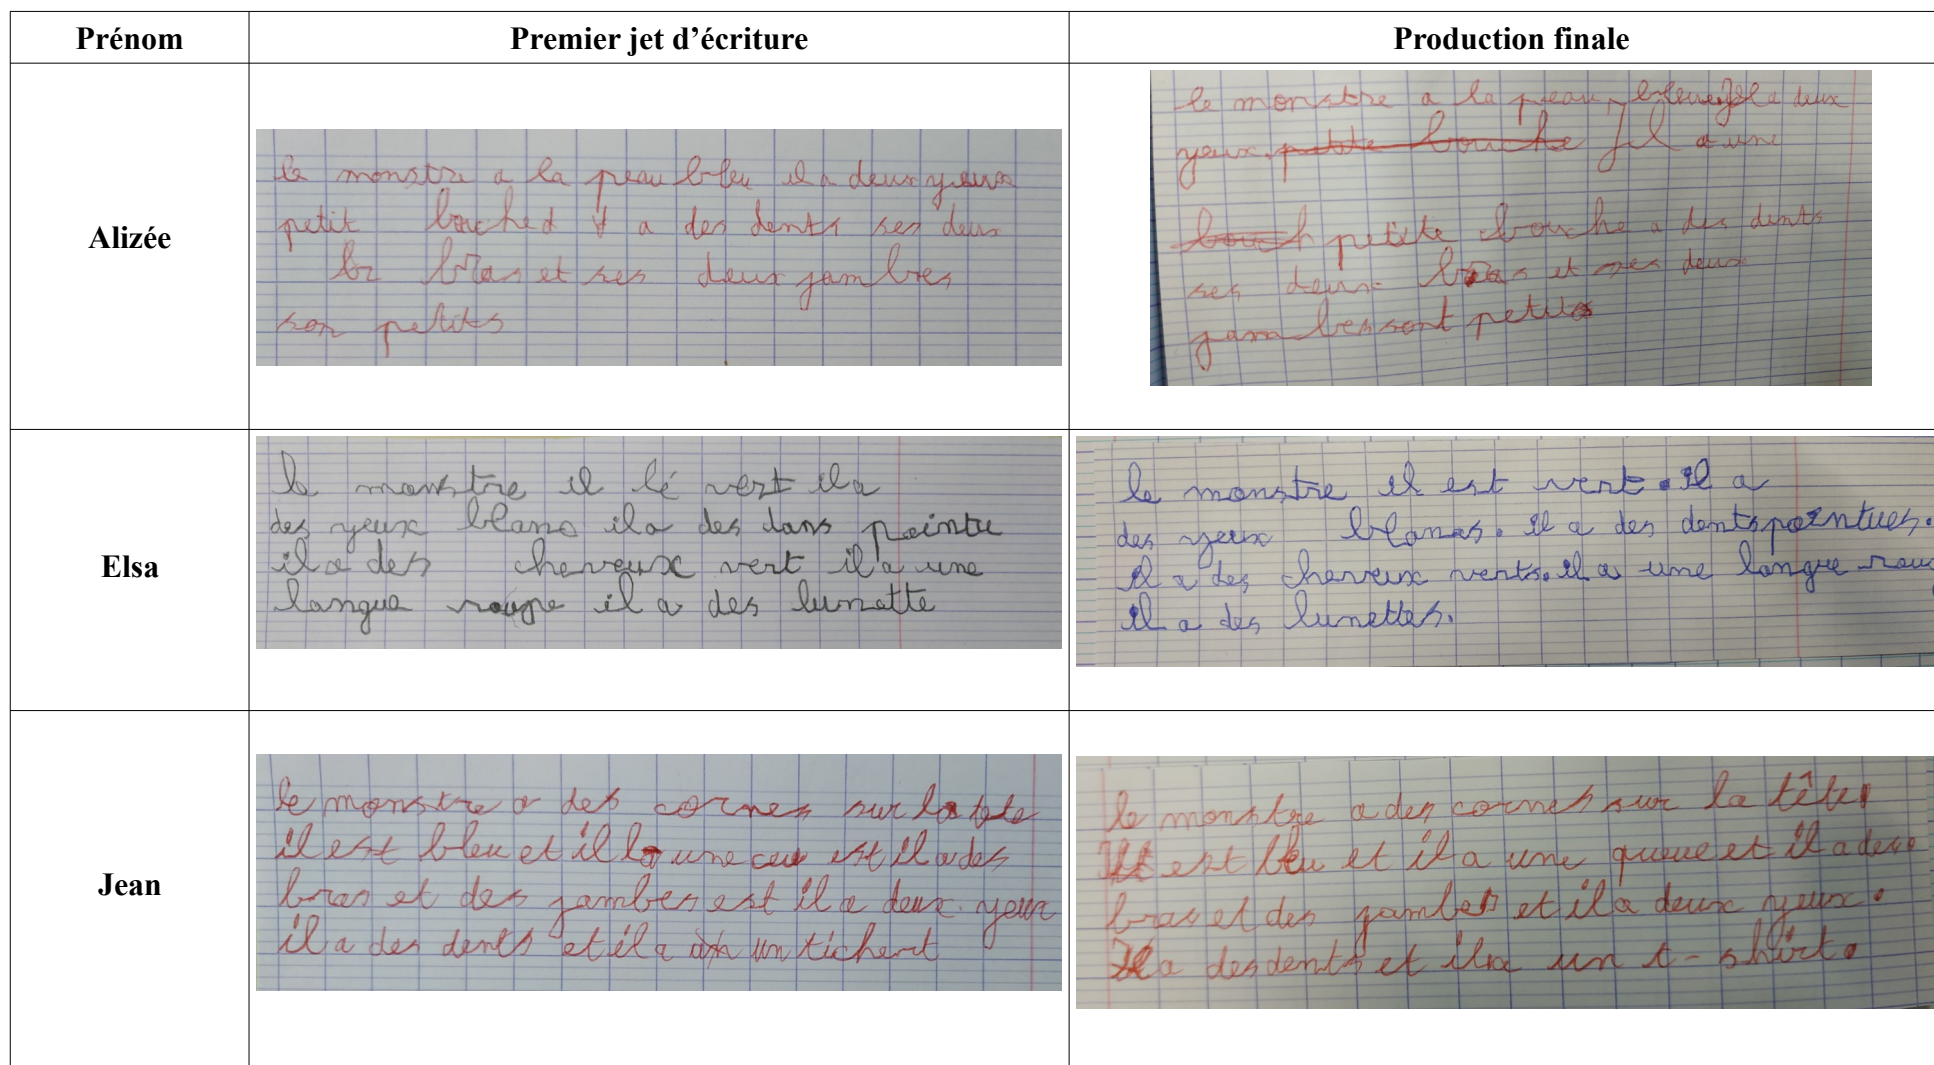 Prénom
Premier jet d'écriture
Production finale
Alizée
le monstre a la peau bleu il a deux yeux
petit bouched a des dents ses deux
br bras et ses deux jambres
son petits
le monstre a la peau bleue. Il a deux
yeux. petite bouche Il a une
bouch petite bouche a des dents
ses deux bras et ses deux
jambes sont petits
Elsa
le monstre il lé vert il a
des yeux blans il a des dans pointu
il a des cheveux vert il a une
langue rouge il a des lunatte
le monstre il est vert. Il a
des yeux blancs. Il a des dents pointues.
Il a des cheveux verts. Il a une langue roug
Il a des lunettes.
Jean
le monstre a des cornes sur la tete
il est bleu et il la une ceu est il a des
bras et des jambes est il a deux yeux
il a des dents et il a un tichert
le monstre a des cornes sur la tête.
Il est bleu et il a une queue et il a deux
bras et des jambes et il a deux yeux.
Il a des dents et il a un t-shirt.